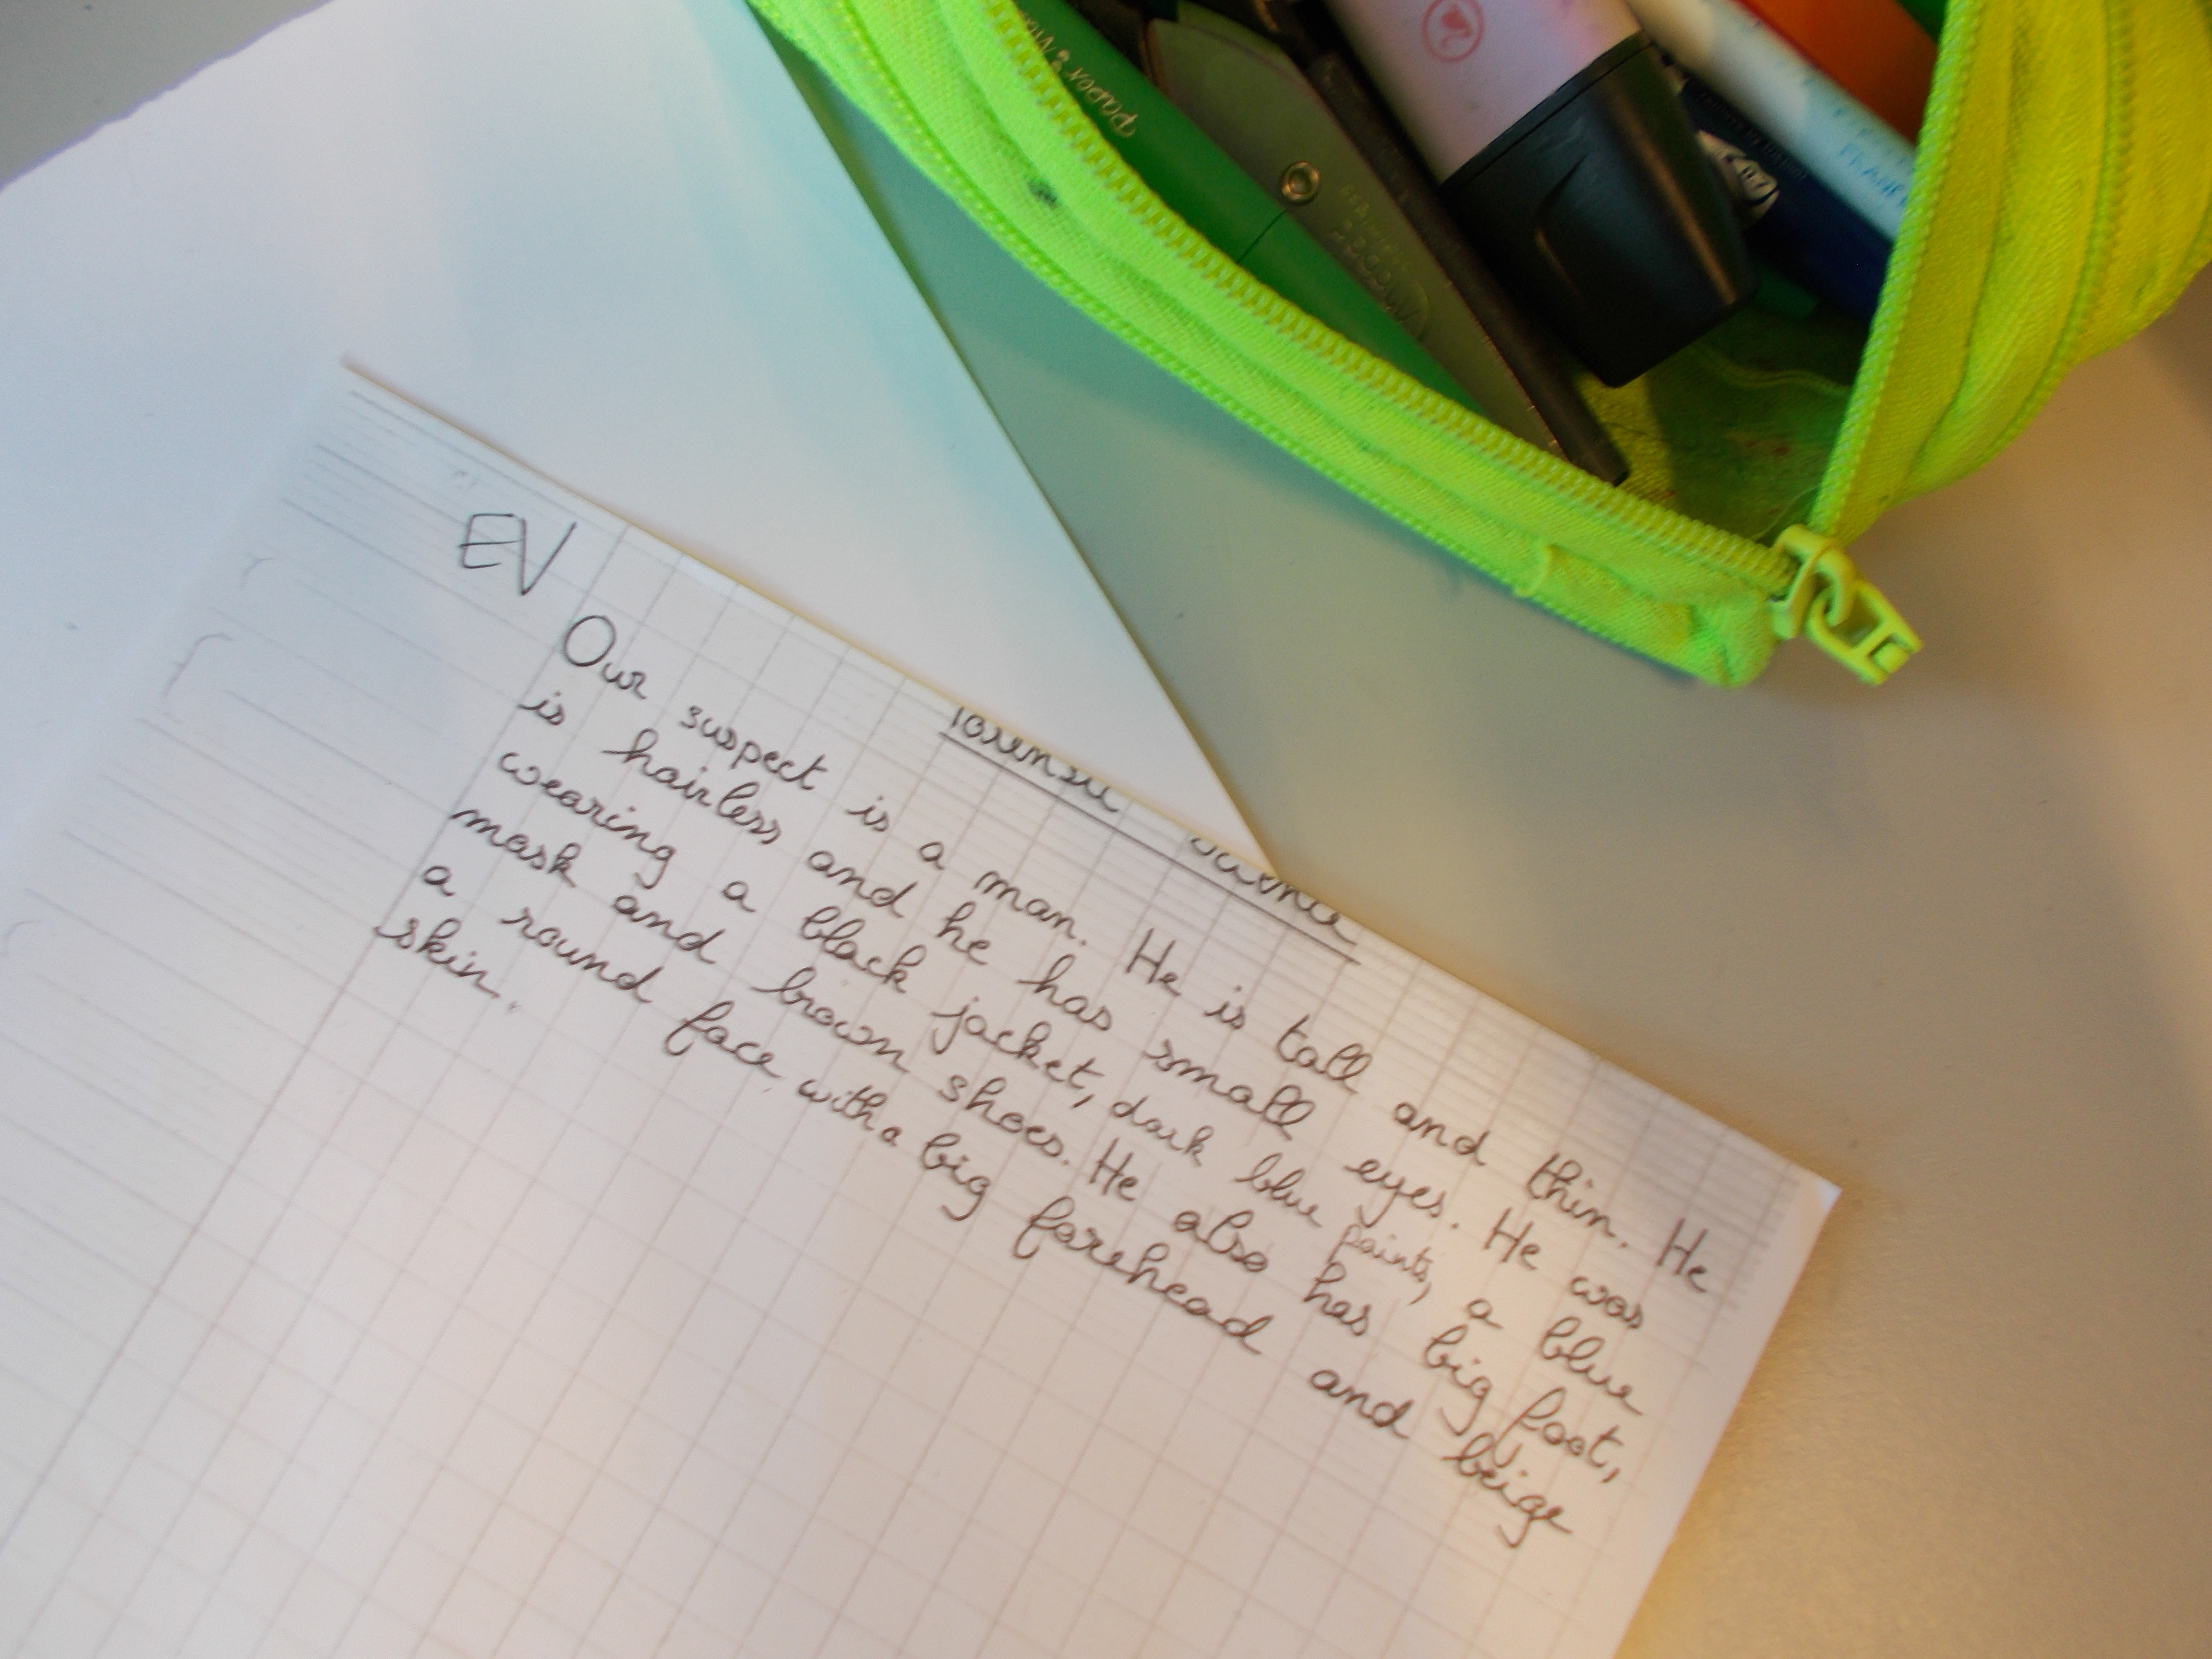 EV
forensic science
Our suspect is a man. He is tall and thin. He
is hairless and he has small eyes. He was
wearing a black jacket, dark blue paints, a blue
mask and brown shoes. He also has big foot,
a round face, with a big forehead and beige
skin.